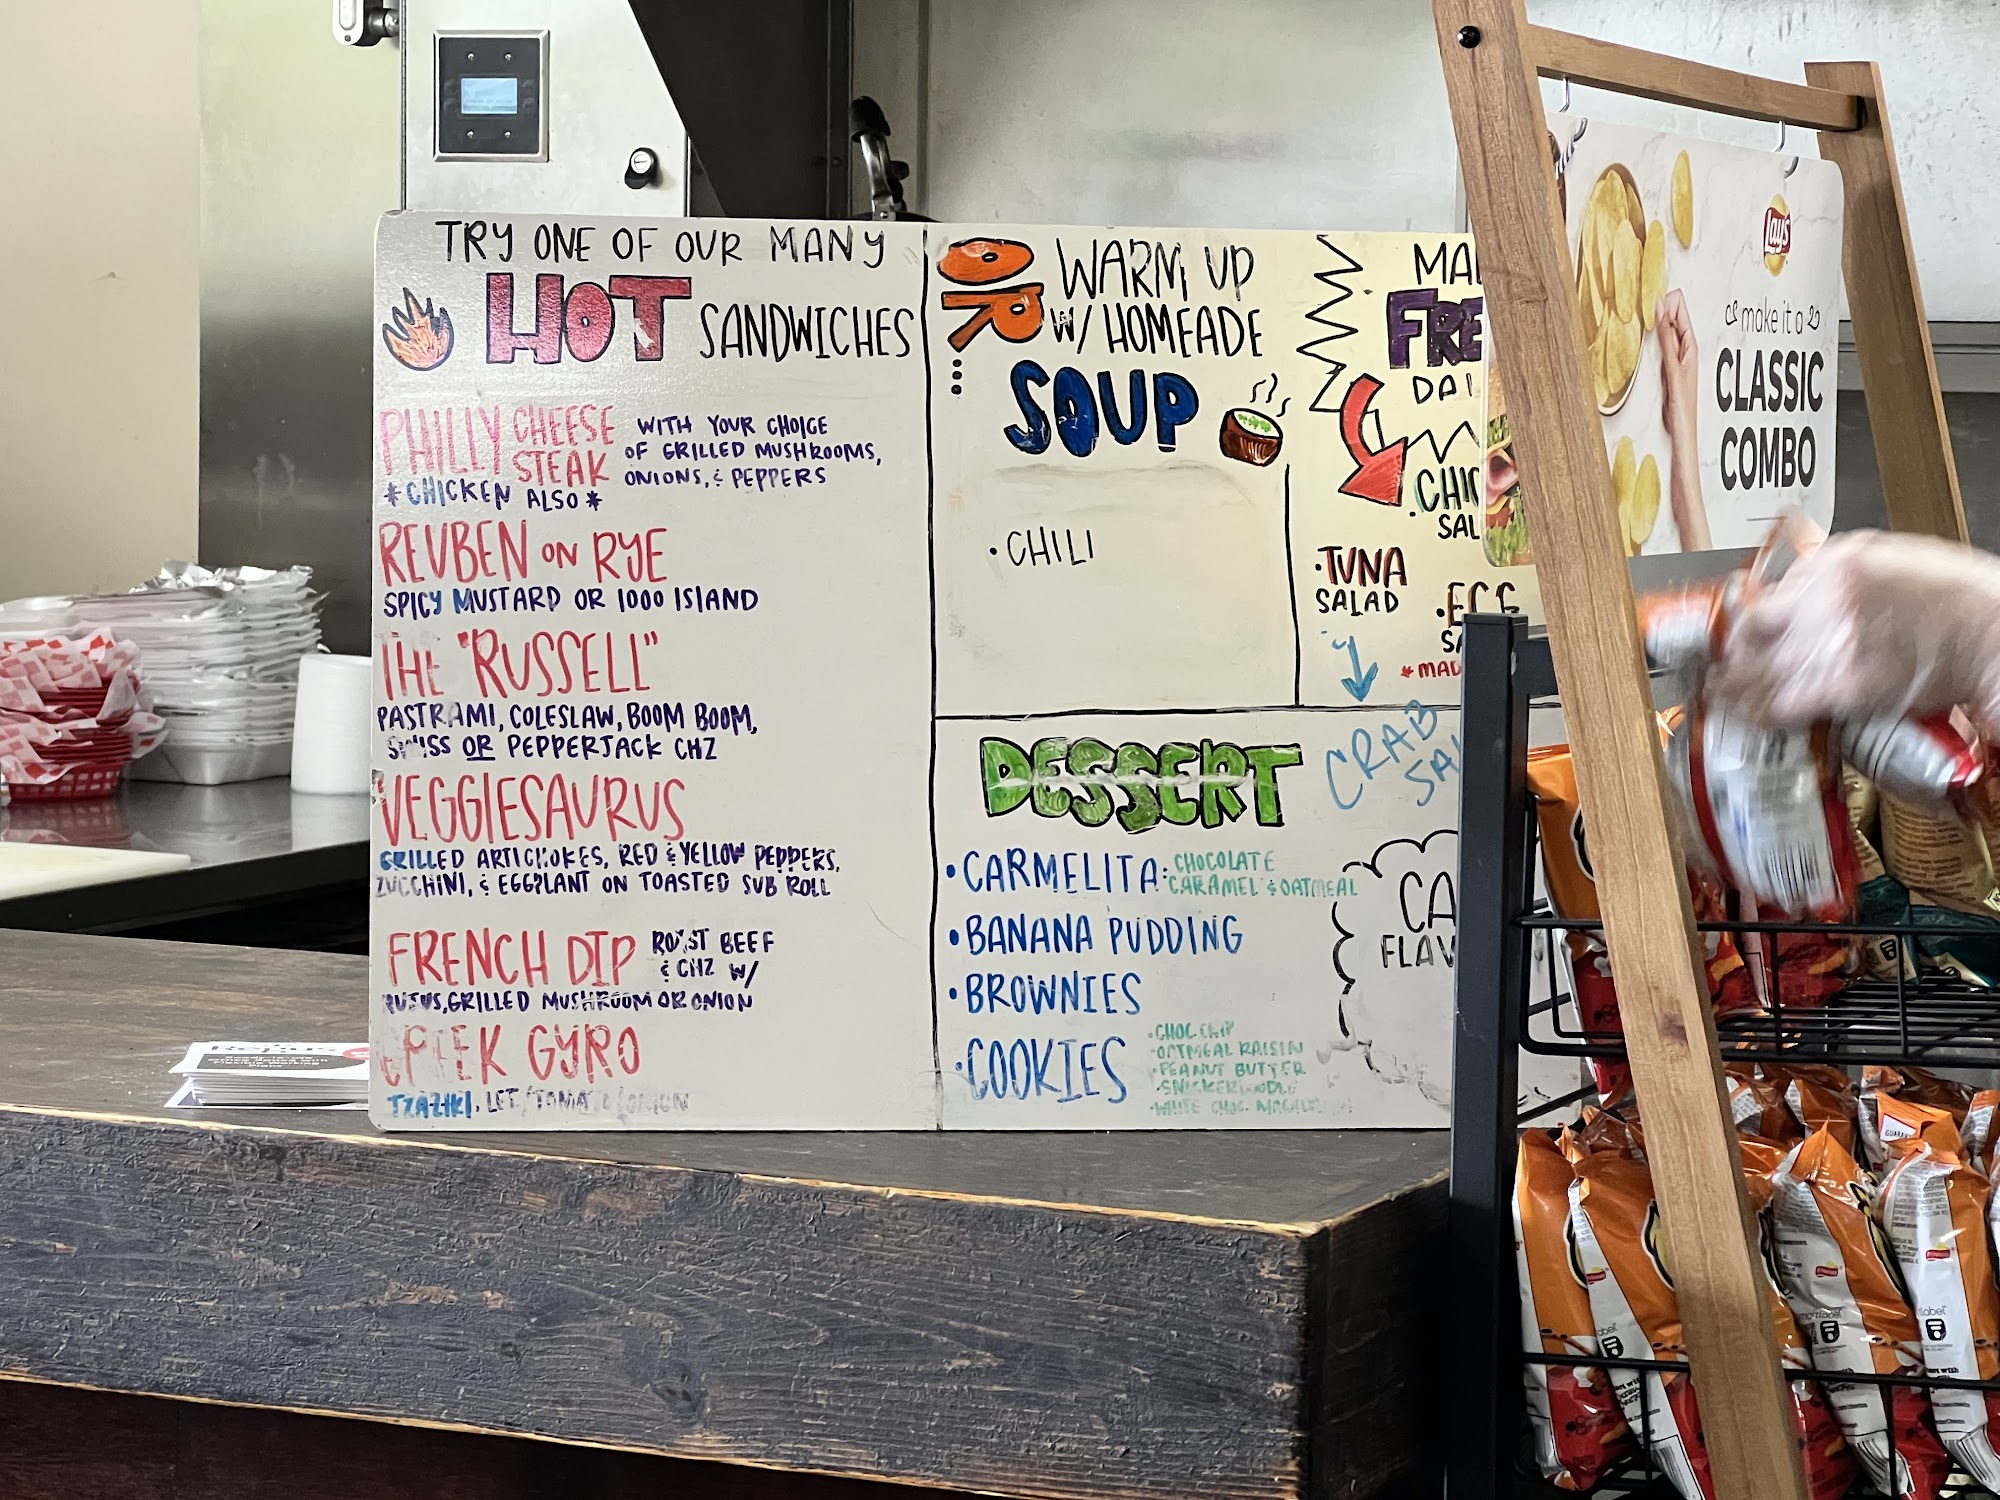 TRY ONE OF OUR MANY
HOT SANDWICHES
PHILLY CHEESE STEAK
WITH YOUR CHOICE
OF GRILLED MUSHROOMS,
ONIONS, & PEPPERS
*CHICKEN ALSO*
REUBEN ON RYE
SPICY MUSTARD OR 1000 ISLAND
THE "RUSSELL"
PASTRAMI, COLESLAW, BOOM BOOM,
SWISS OR PEPPERJACK CHZ
VEGGIESAURUS
GRILLED ARTICHOKES, RED & YELLOW PEPPERS,
ZUCCHINI, & EGGPLANT ON TOASTED SUB ROLL
FRENCH DIP
ROAST BEEF
& CHZ W/
GRILLED MUSHROOM OR ONION
GYRO
TZAZIKI, LET/TOMATO/ONION
OR...
WARM UP
W/ HOMEADE
SOUP
•CHILI
MA
FRE
DAI
•CHIC
SAL
•TUNA
SALAD
•EGG
SA
*MAD
CRAB
SAL
DESSERT
•CARMELITA: CHOCOLATE
CARAMEL & OATMEAL
•BANANA PUDDING
•BROWNIES
•COOKIES
•CHOC CHIP
•OATMEAL RAISIN
•PEANUT BUTTER
•SNICKERDOODLE
•WHITE CHOC.
CA
FLAV
Lay's
make it a
CLASSIC
COMBO